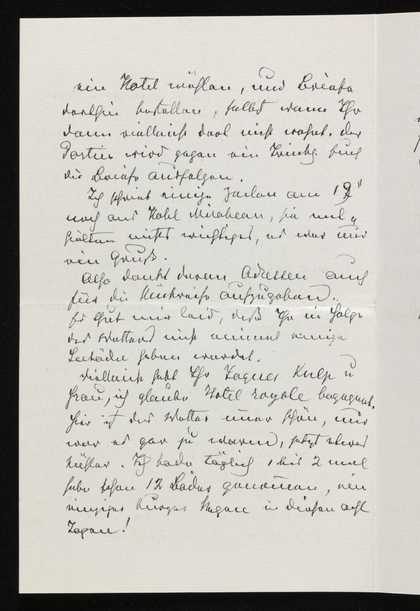 ein Hotel wählen, und Briefe
dorthin bestellen, selbst wenn Ihr
dann vielleicht dort nicht wohnt. Der
Portier wird gegen ein Trinkg. Euch
die Briefe ausfolgen.
Ich schrieb einige Zeilen am 19
noch ans Hotel Mirabeau, sie ent-
hielten nichts wichtiges, es war nur
ein Gruß.
Also denkt daran Adressen auch
für die Rückreise aufzugeben.
Es thut mir leid, daß Ihr in Folge
des Wetters nicht einmal einige
Seebäder haben werdet.
Vielleicht habt Ihr Kulp u
Frau, ich glaube Hotel royale begegnet.
Hier ist das Wetter immer schön, nur
war es gar zu warm, jetzt etwas
kühler. Ich bade täglich 1 bis 2 mal
habe schon 12 Bäder genommen, ein
einziger kurzer Regen in diesen acht
Tagen!